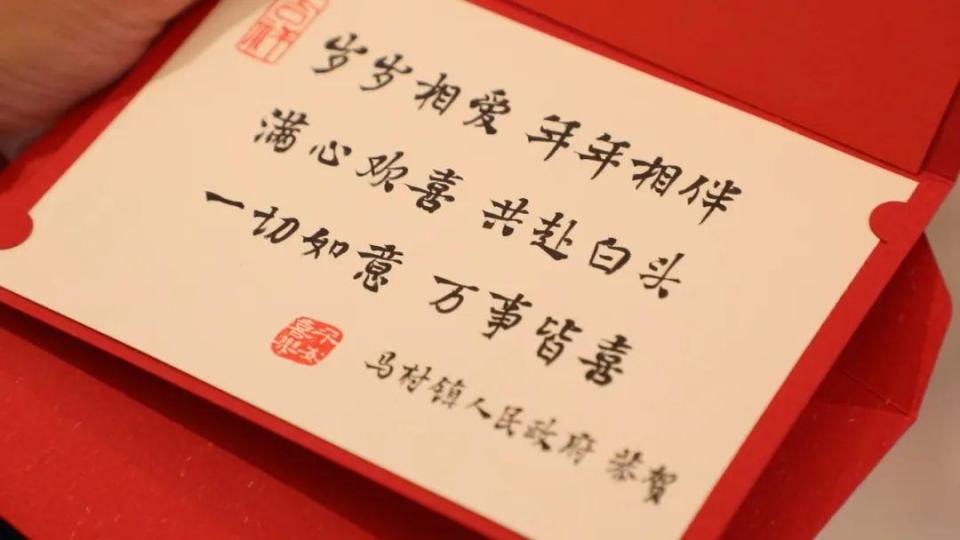 吉祥
岁岁相爱 年年相伴
满心欢喜 共赴白头
一切如意 万事皆喜
马村镇人民政府 恭贺